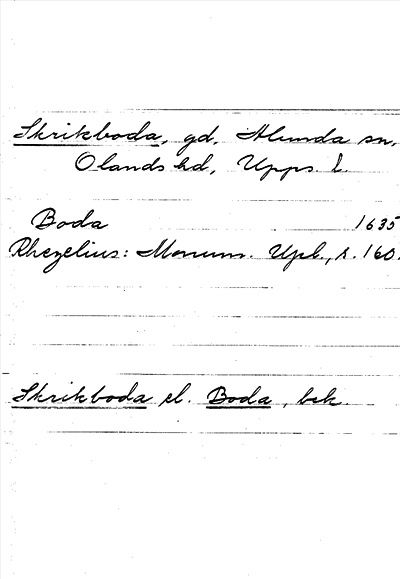 Skrikboda, gd, Alunda sn,
Olands hd, Upps. l.
Boda 1635
Rhezelius: Monum. Upl., s. 160.
Skrikboda el. Boda, bek.